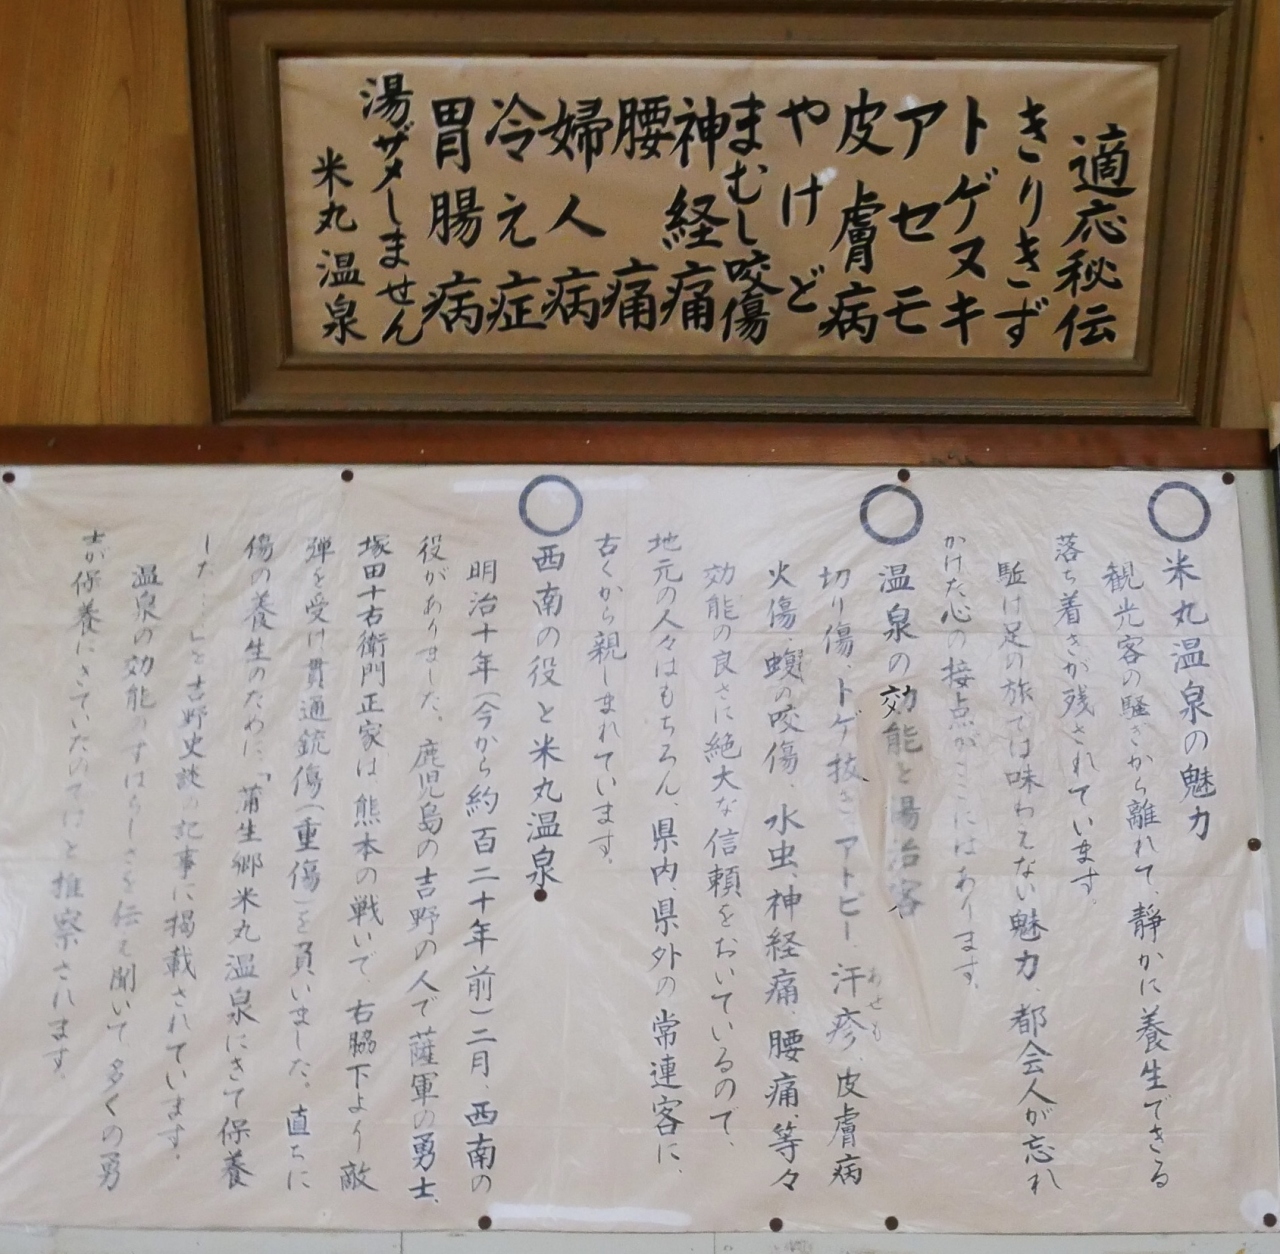 適応秘伝
きりきず
トゲヌキ
アセモ
皮膚病
やけど
まむし咬傷
神経痛
腰痛
婦人病
冷え症
胃腸病
湯ザメしません
米丸温泉
○米丸温泉の魅力
観光客の騒ぎから離れて、静かに養生できる
落ち着きが残されています。
駈け足の旅では味わえない魅力、都会人が忘れ
かけた心の接点がここにはあります。
○温泉の効能と湯治客
切り傷、トゲ抜き、アトピー、汗疹、皮膚病
あせも
火傷、蝮の咬傷、水虫、神経痛、腰痛、等々
効能の良さに絶大な信頼をおいているので、
地元の人々はもちろん、県内、県外の常連客に、
古くから親しまれています。
○西南の役と米丸温泉
明治十年(今から約百二十年前)二月、西南の
役がありました。鹿児島の吉野の人で薩軍の勇士、
塚田十右衛門正家は熊本の戦いで、右脇下より敵
弾を受け貫通銃傷(重傷)を負いました。直ちに
傷の養生のために、「蒲生郷米丸温泉にきて保養
した…」と吉野史談の記事に掲載されています。
温泉の効能のすばらしさを伝え聞いて、多くの勇
士が保養にきていたのではと推察されます。